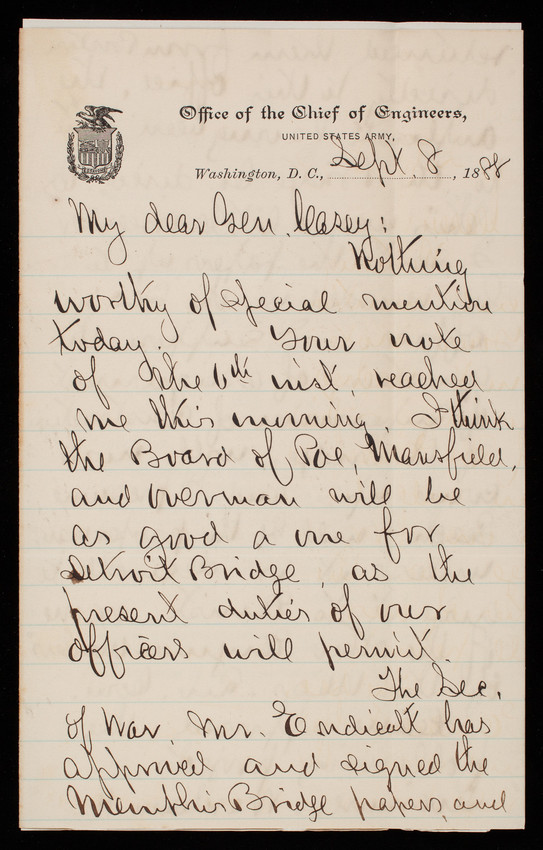 Office of the Chief of Engineers,
UNITED STATES ARMY,
Washington, D. C., Sept. 8, 1888
My dear Gen. Casey:
Nothing
worthy of special mention
today. Your note
of the 6th inst. reached
me this morning. I think
the Board of Poe, Mansfield,
and Overman will be
as good a one for
Detroit Bridge, as the
present duties of our
officers will permit.
The Sec.
of War, Mr. Endicott has
approved and signed the
Memphis Bridge papers, and